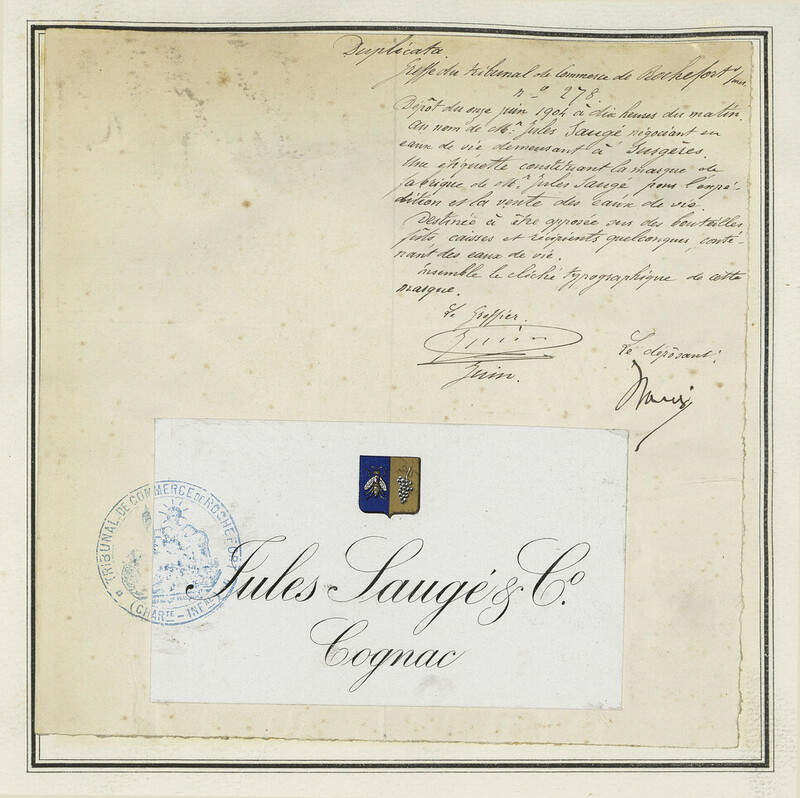 Duplicata
Greffe du tribunal de Commerce de Rochefort s/mer
nº 278
Dépôt du onze juin 1904 à dix heures du matin
au nom de Mr. Jules Saugé négociant en
eaux de vie demeurant à Surgères.
Une étiquette constituant la marque de
fabrique de Mr. Jules Saugé pour l'expé-
dition et la vente des eaux de vie.
Destinée à être apposée sur des bouteilles
fûts, caisses et récipients quelconques, conte-
nant des eaux de vie.
Ensemble le cliché typographique de cette
marque.
Le Greffier.
Le déposant.
Juin.
TRIBUNAL DE COMMERCE DE ROCHEFORT
(CHARTE - INFRE)
Jules Saugé & Cº.
Cognac